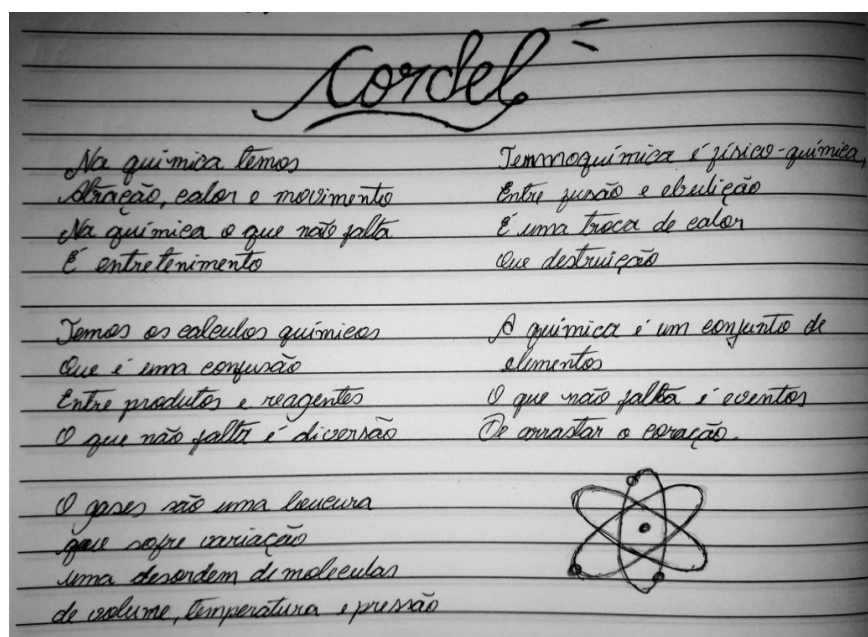 Cordel
Na química temos
Atração, calor e movimento
Na química o que não falta
É entretenimento
Temos os calculos químicos
Que é uma confusão
Entre produtos e reagentes
O que não falta é diversão
O gases são uma loucura
que sofre variação
uma desordem de moleculas
de volume, temperatura e pressão
Termoquímica é físico-química,
Entre fusão e ebulição
É uma troca de calor
Que destruição
A química é um conjunto de
elementos
O que não falta é eventos
De arrastar o coração.